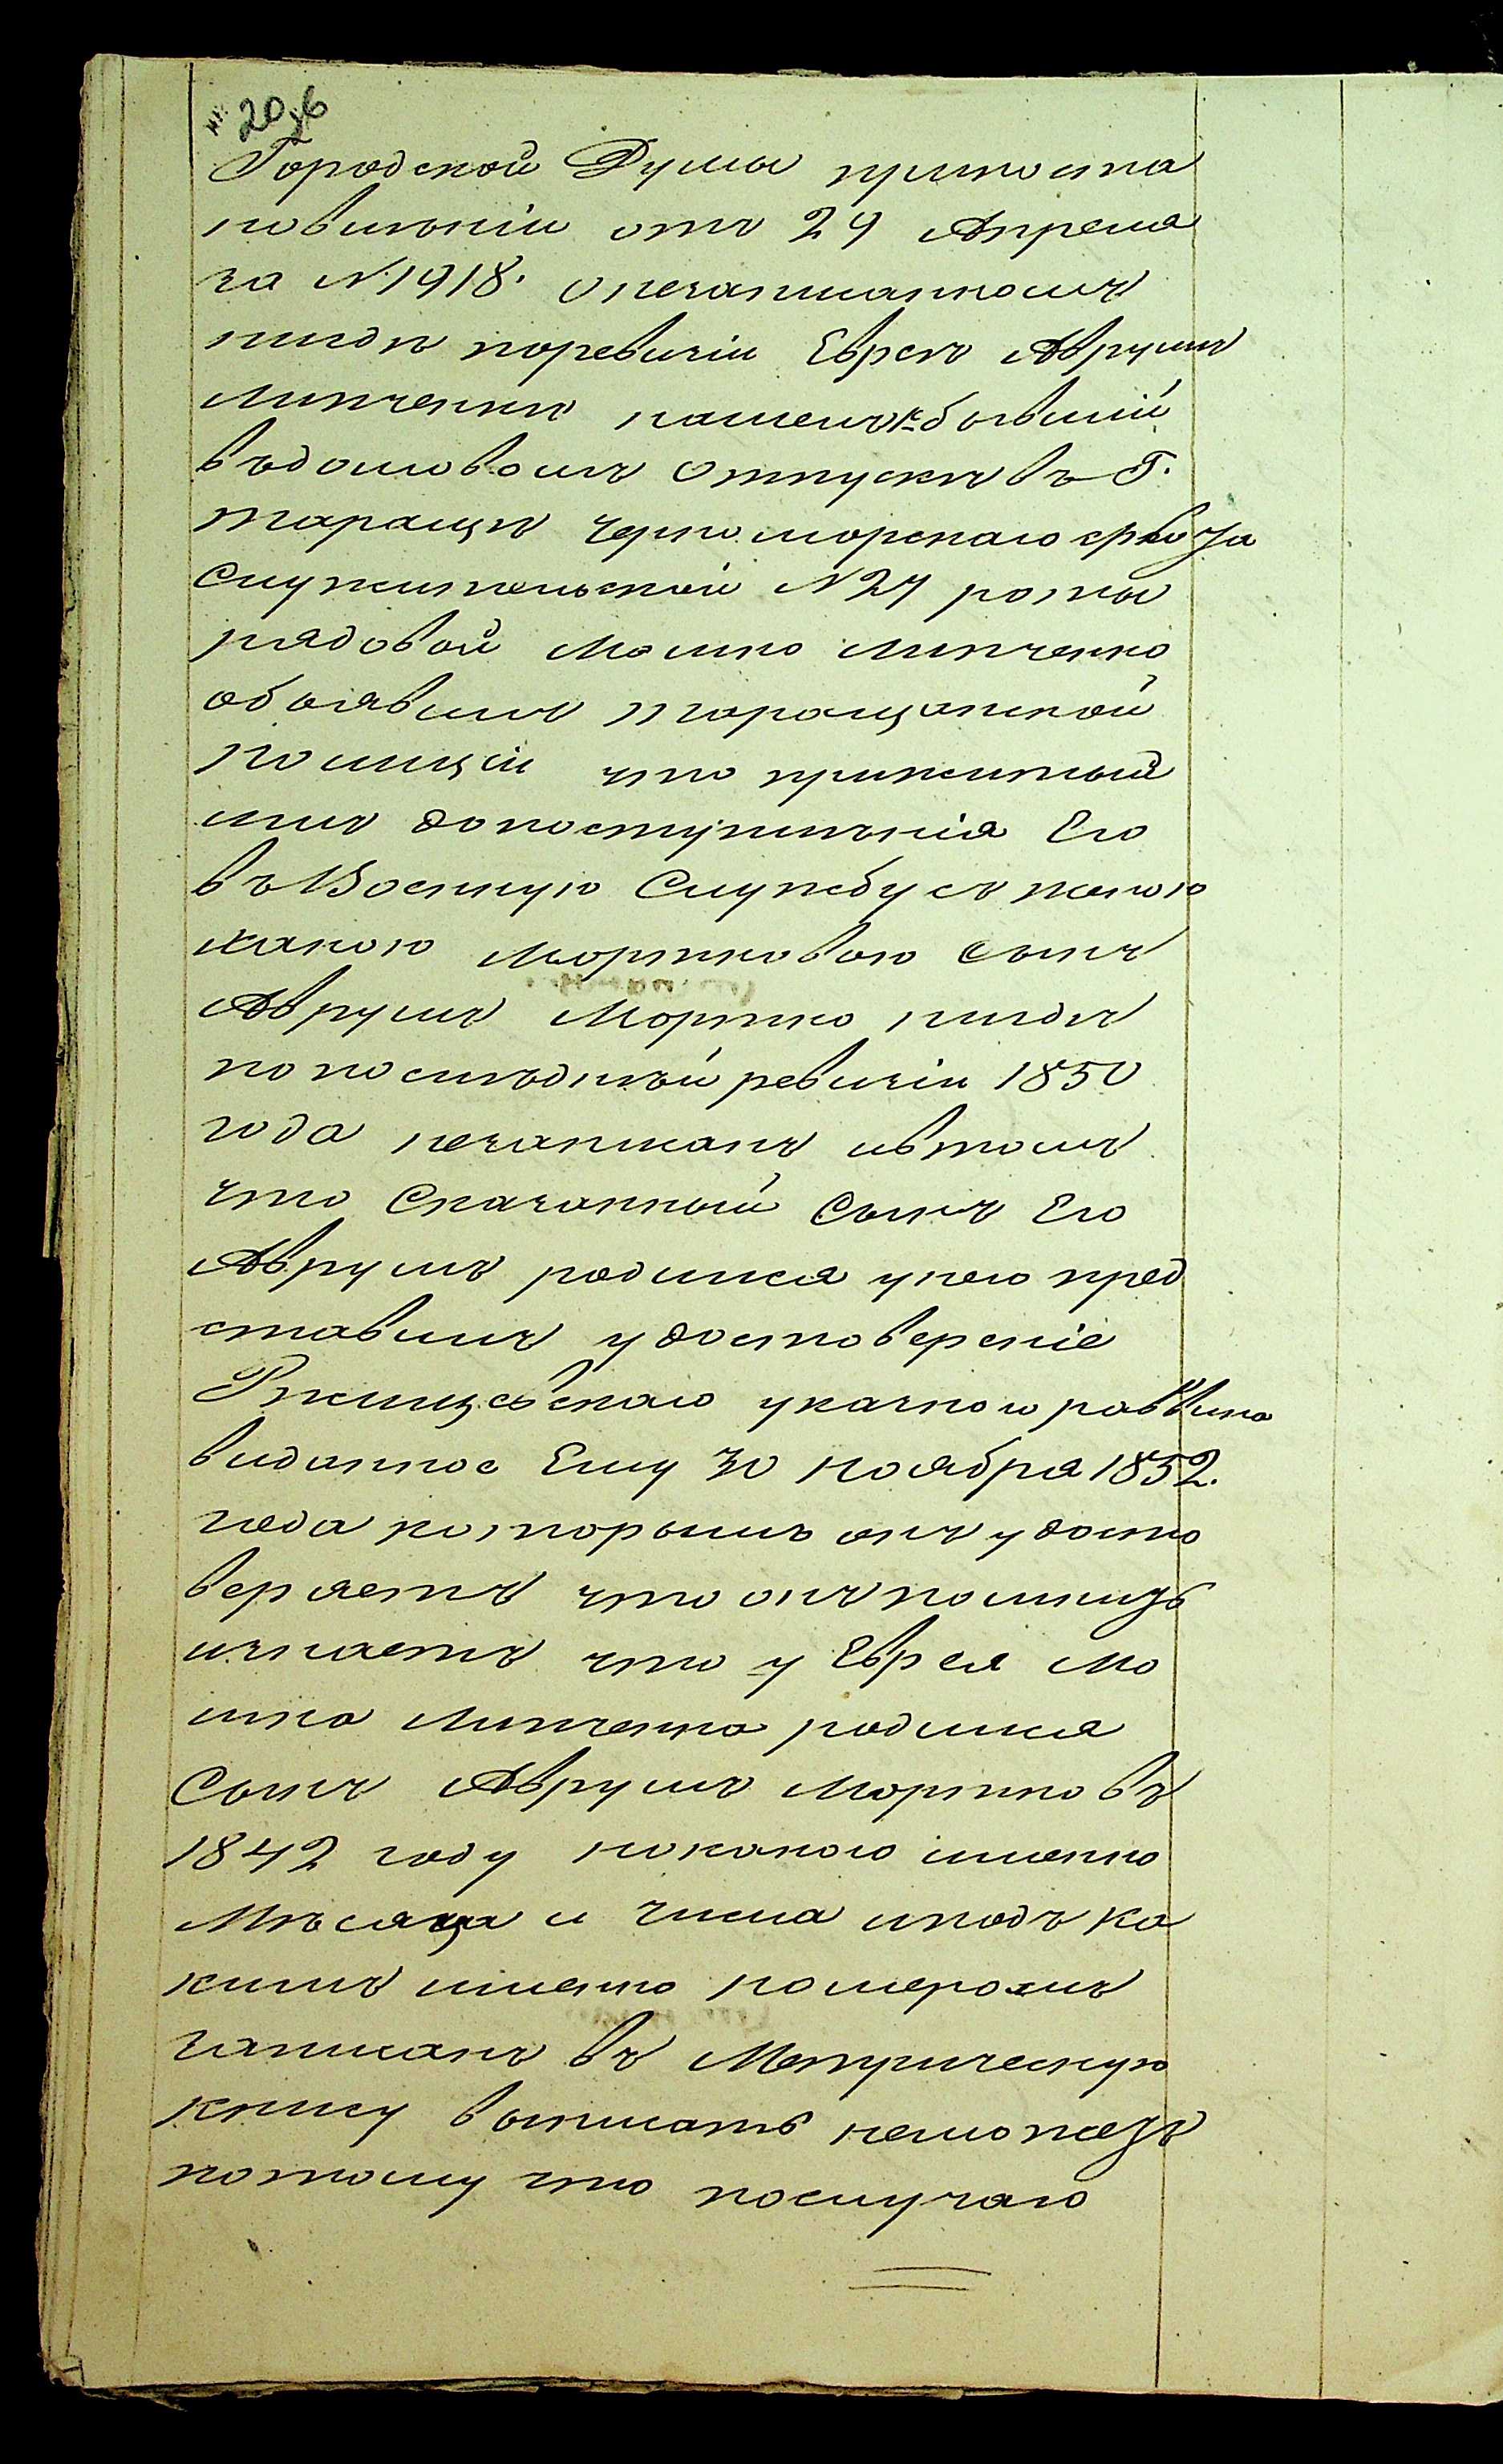 20, 6
Городской Думы припоста
новленіи отъ 29 Апреля
за N. 1918. о незаписанномъ
нигдѣ поревизіи Еврею Аврумѣ
Липченкѣ нашелъ: бывшій
въдомовомъ отпуску въ Г.
таращѣ черноморскаго
служительской N 27 роты
рядовой Мошко Липченко
объявилъ таращанской
полиціи что прижитый
имъ допоступленія Его
въ Военную Службу съ женою
Ханою Мортковою сынъ
Аврумъ Мортко нигдѣ
по послѣдней ревизіи 1850
года незаписанъ ивтомъ
что Сказанный Сынъ Его
Аврумъ родился унего пред
ставилъ удостовереніе
Ржищевскаго указного раввина
виданное Ему 30 ноября 1852.
года которымъ онъ удосто
веряетъ что онъ помнитъ
изнаетъ что у Еврея Мо
шка Липченка родился
Сынъ Аврумъ Мортко въ
1842 году нокакого именно
Мѣсяца и числа иподъ ка
кимъ именно номеромъ
записанъ въ Метрическую
книгу выписать неможетъ
потому что послучаю